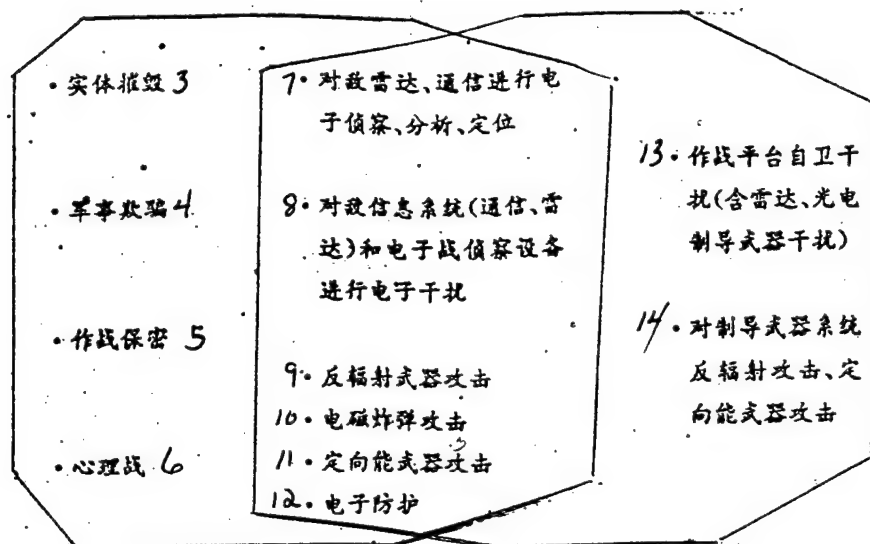 • 实体摧毁 3
• 军事欺骗 4
• 作战保密 5
• 心理战 6
7• 对敌雷达、通信进行电
子侦察、分析、定位
8• 对敌信息系统(通信、雷
达)和电子战侦察设备
进行电子干扰
9• 反辐射武器攻击
10• 电磁炸弹攻击
11• 定向能武器攻击
12• 电子防护
13• 作战平台自卫干
扰(含雷达、光电
制导武器干扰)
14• 对制导武器系统
反辐射攻击、定
向能武器攻击